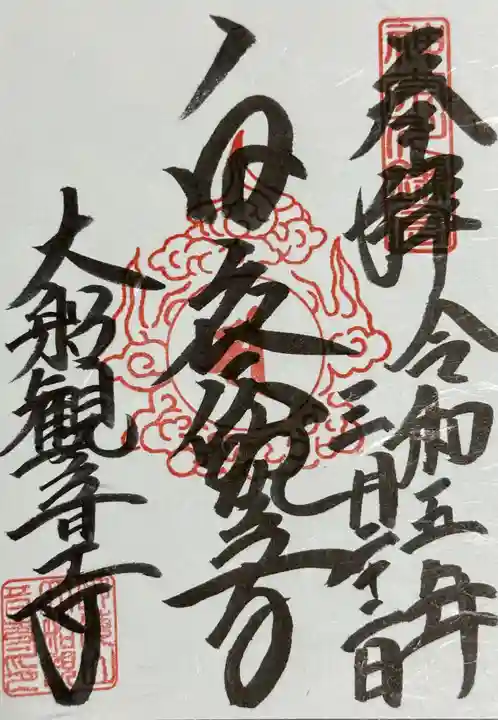 奉拝 令和五年
三月二十二日
白衣観音
大船観音寺